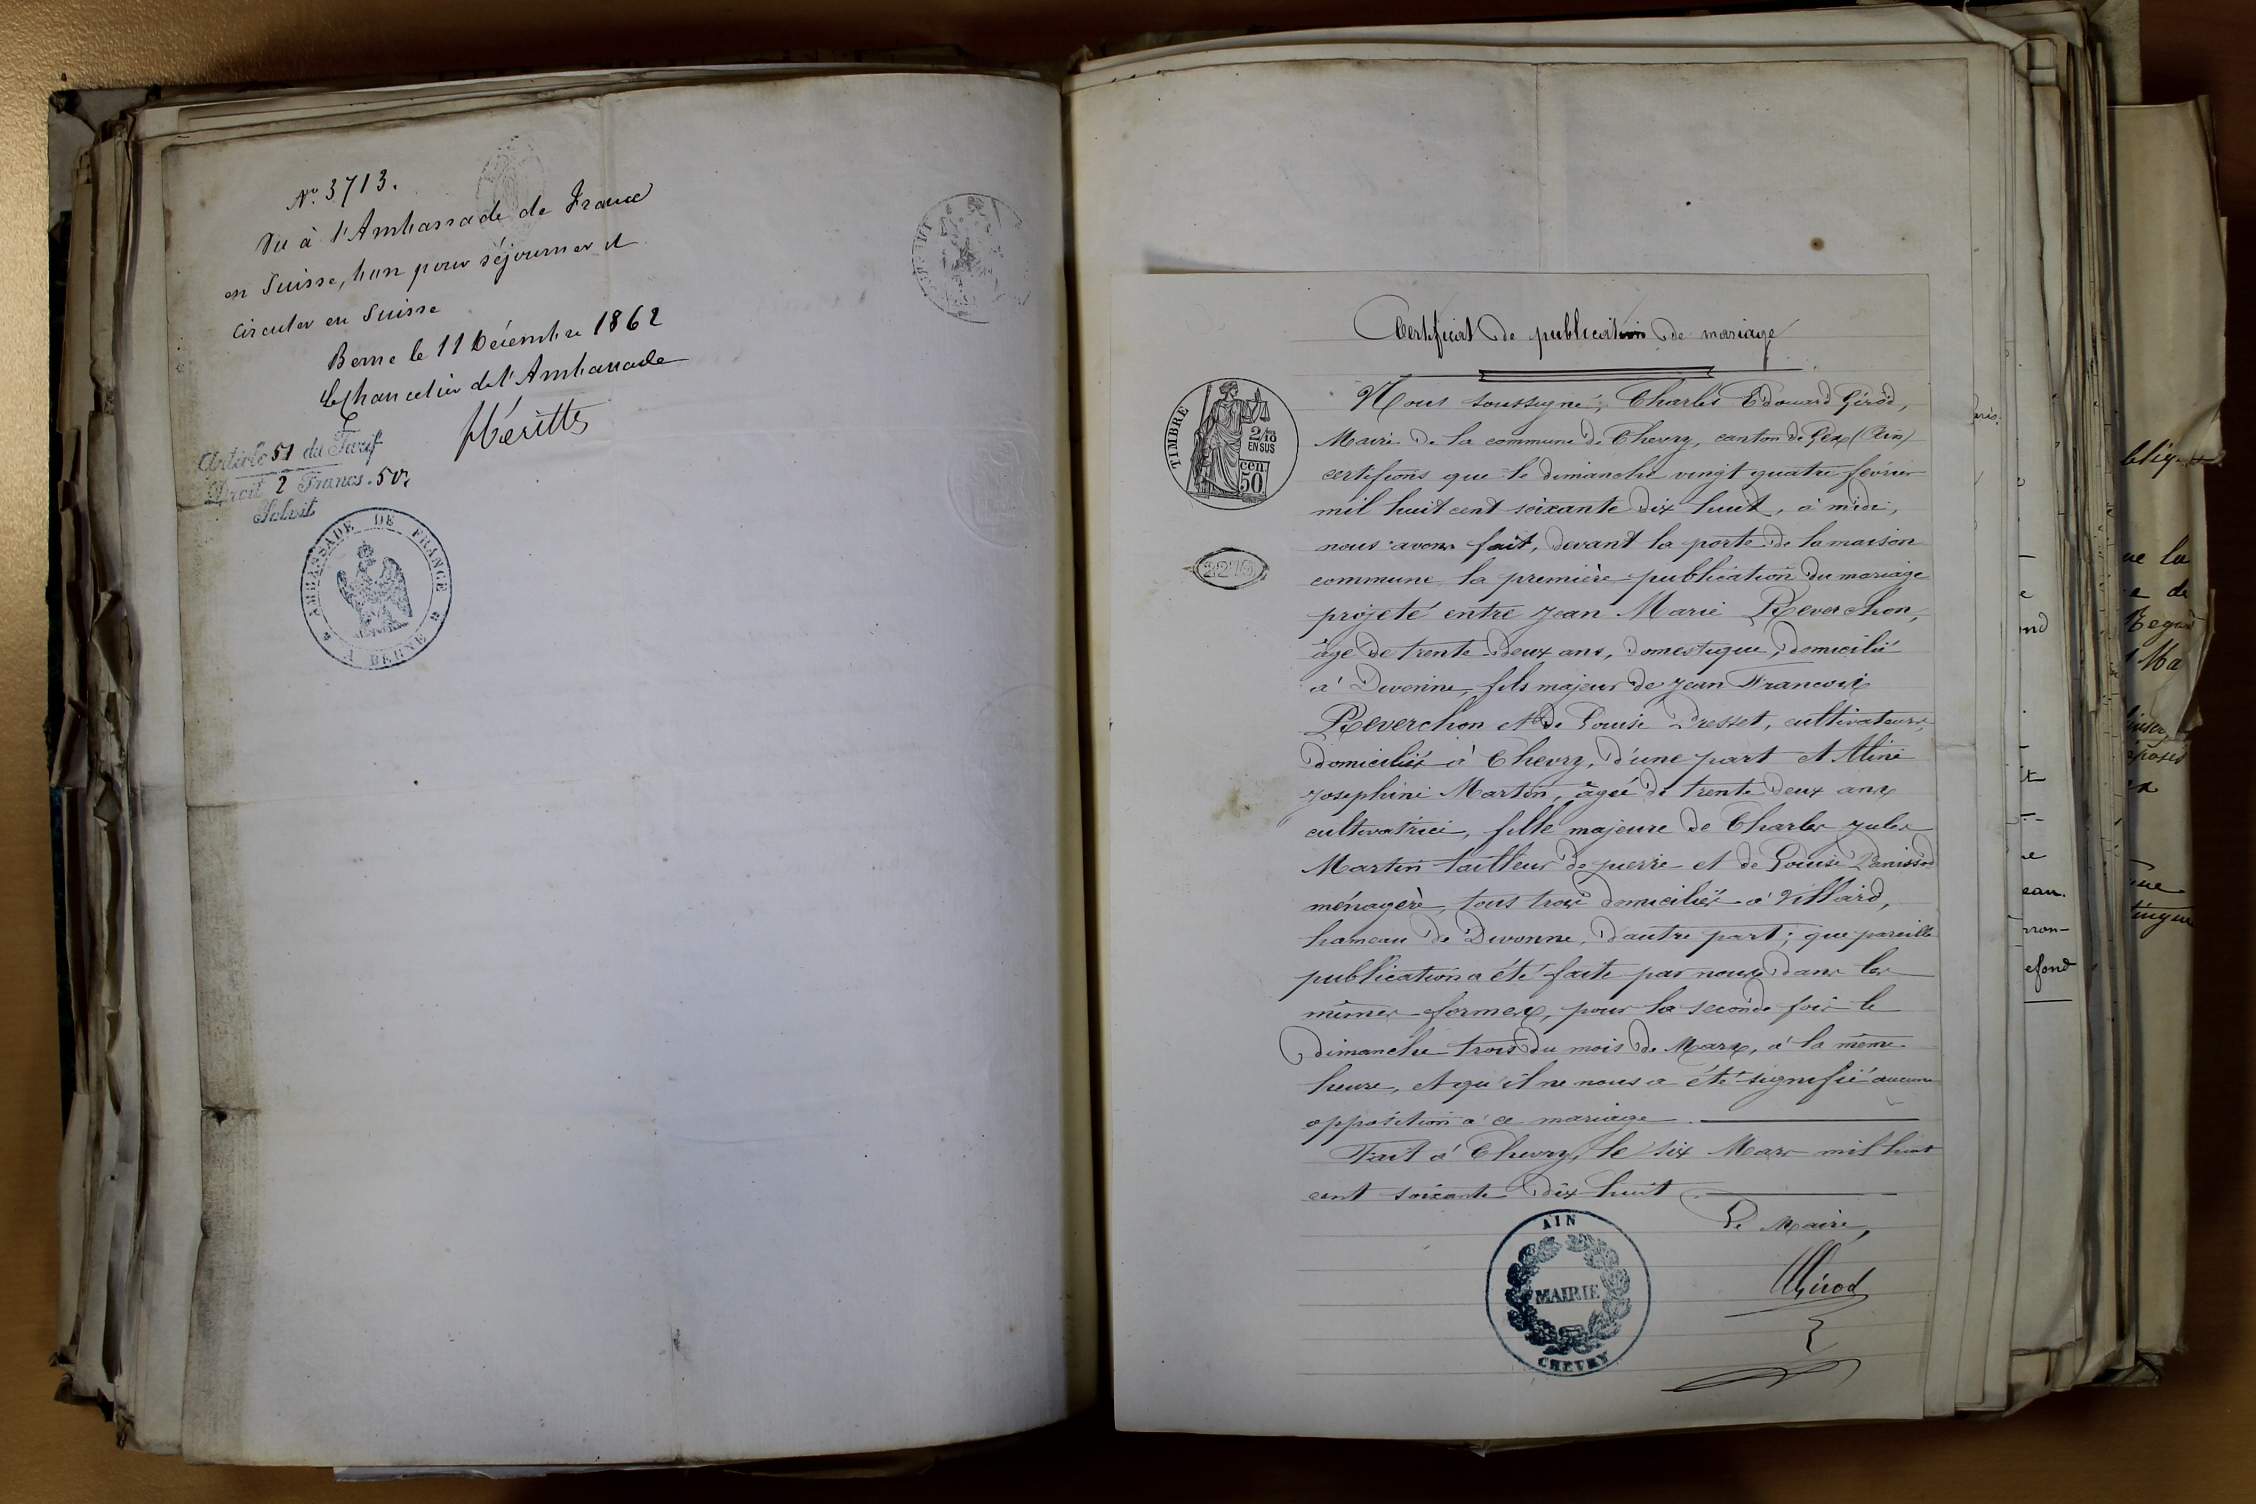 No. 3713.
Vu à l'Ambassade de France
en Suisse, bon pour séjourner et
circuler en Suisse
Berne le 11 Décembre 1862
Le Chancelier de l'Ambassade
Article 51 du Tarif
Droit 2 Francs. 50
Solvit
AMBASSADE DE FRANCE
A BERNE
Certificat de publication de mariage
TIMBRE
2/10
EN SUS
50
cen
Nous soussigné, Charles Edouard Girod,
Maire de la commune de Chevry, canton de Gex (Ain)
certifions que le dimanche vingt quatre fevrier
mil huit cent soixante dix huit, à midi,
nous avons fait, devant la porte de la maison
commune la première publication du mariage
projeté entre Jean Marie Reverchon,
âgé de trente deux ans, domestique, domicilié
à Divonne, fils majeur de Jean François
Reverchon et de Louise Dresset, cultivateurs,
domiciliés à Chevry, d'une part et Aline
Josephine Martin, âgée de trente deux ans
cultivatrice, fille majeure de Charles Jules
Martin tailleur de pierre et de Louise
ménagère, tous trois domiciliés à Villard,
hameau de Divonne, d'autre part; que pareille
publication a été faite par nous dans les
mêmes formes, pour la seconde fois le
dimanche trois du mois de Mars, à la même
heure, et qu'il ne nous a été signifié aucune
opposition à ce mariage.
Fait à Chevry, le six Mars mil huit
cent soixante dix huit.
Le Maire,
Girod
AIN
MAIRIE
CHEVRY
ue la
e de
Ma
nd
ean.
rron-
efond